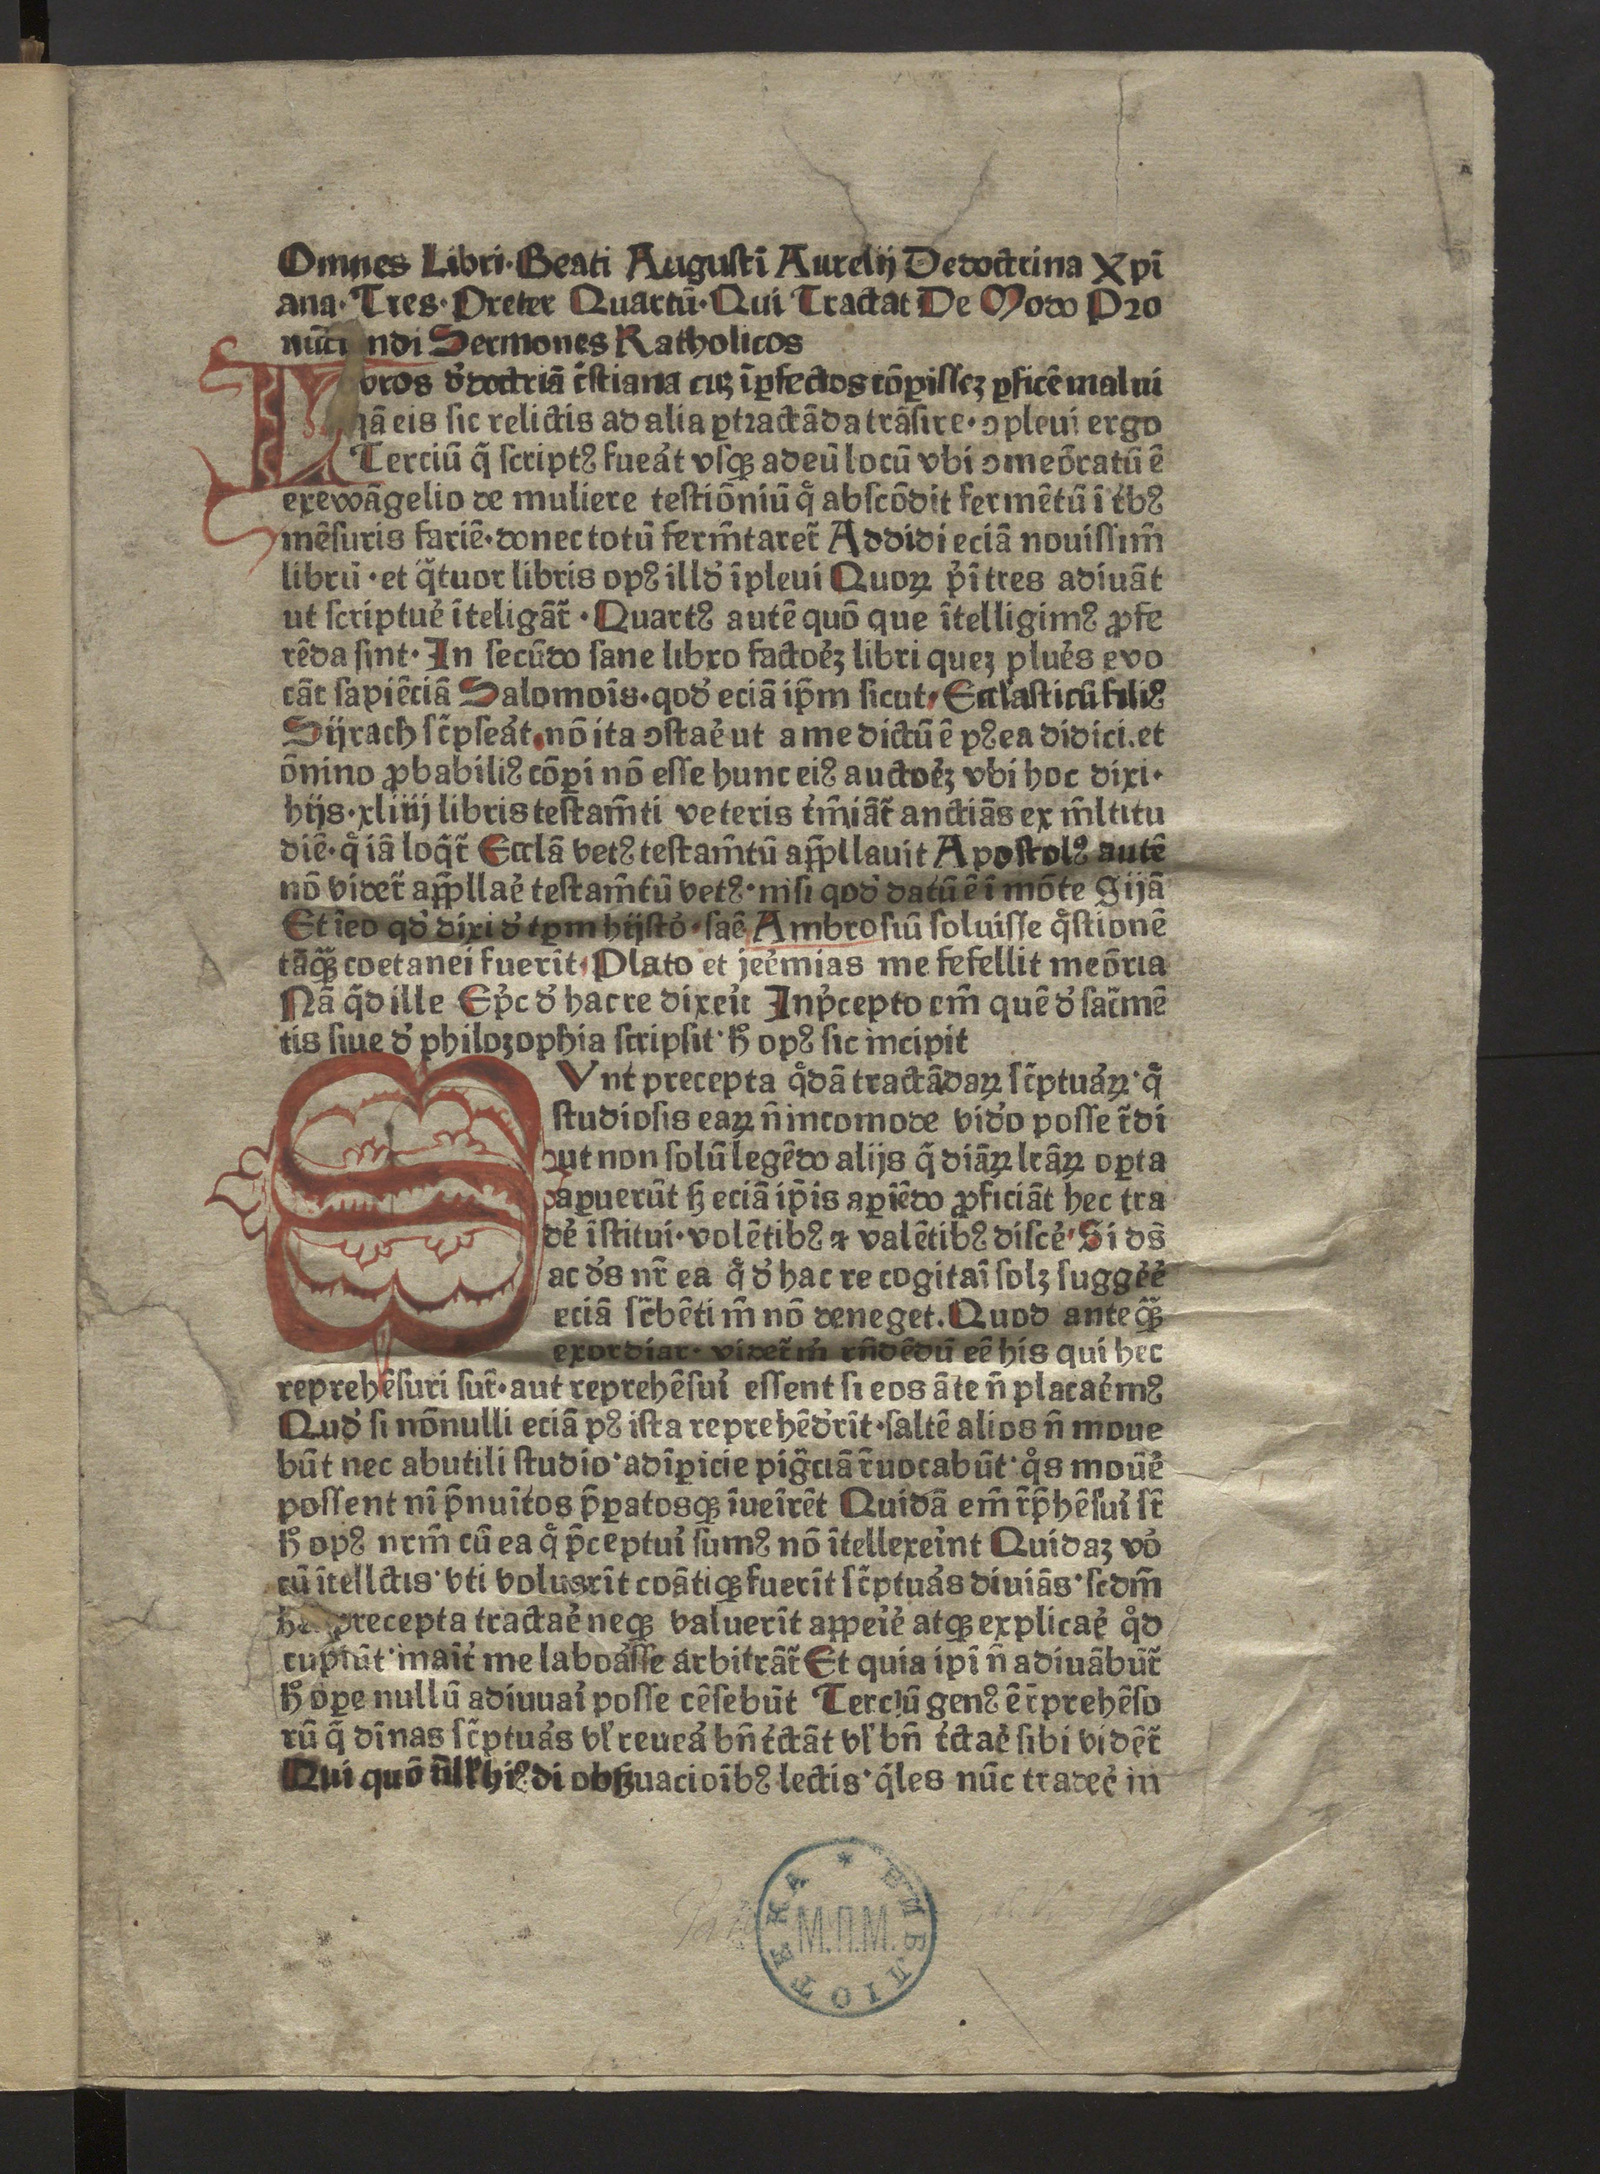 Omnes Libri· Beati Augustī Aurelij De doctrina Xpī
ana· Tres· Preter Quartū· Qui Tractat De Modo Pro
nūci ndi Sermones Katholicos
L bros đ doctriā c̄stiana cuȝ īꝑfectos cōpissȝ ꝑficē malui
ꝗ̄ā eis sic relictis ad alia ꝑtractāda trāsire· ɔpleui ergo
Terciū q̄ scriptꝰ fueat vsqȝ ad eū locū vbi ɔmeōratū ē
ex ewāgelio de muliere testiōniū q̊ abscōdit fermētū ī tbꝰ
mēsuris fariē· donec totū ferm̄taret̄ Addidi eciā nouissim̄
librū· et q̄tuor libris opꝰ illđ īpleui Quoꝝ p̄ī tres adiuāt
ut scriptue īteligāt̄· Quartꝰ autē quō que ītelligimꝰ ꝓfe
rēda sint· In secūdo sane libro factoeȝ libri queȝ plues evo
cāt sapiēciā Salomoīs· qođ eciā ip̄m sicut Eccl'asticū filiꝰ
Sijrach sc̄pseat nō ita ɔstae ut a me dictū ē pꝰea didici· et
ōnino ꝓbabiliꝰ cōpi nō esse hunc eiꝰ auctoeȝ vbi hoc dixi·
hijs· xliiij libris testam̄ti veteris t̄m̄iāt̄ anctiās ex m̄ltitu
diē· q̊ iā loq̄t̄ Ecclā vetꝰ testam̄tū aꝑꝑllauit Apostolꝰ autē
nō videt̄ aꝑꝑllae testam̄tū vetꝰ· nisi qođ datū ē ī mōte Sijā
Et īeo qđ dixi đ tꝑm hijsto· saē Ambrosiū soluisse q̊stionē
tāqȝ coetanei fuerīt Plato et jeemias me fefellit meōria
Nā q̄d ille Ep̄c đ hac re dixeit In p̄cepto em̄ quē đ sac̄mē
tis siue đ philoȝophia scripsit· h̊ opꝰ sic incipit
S Vnt precepta q̊dā tractādaꝝ sc̄ptuaꝝ· q̊
studiosis eaꝝ n̄ incomode viđo posse t̄di
ut non solū legēdo alijs q̄ diāꝝ lrāꝝ oꝑta
aꝑuerūt ꝫ eciā ip̄is aꝑiēdo ꝓficiāt hec tra
de īstitui· volētibꝰ ⁊ valētibꝰ disce· Si ds̄
ac đs nr̄ ea q̊ đ hac re cogitaī solȝ suggee
eciā sc̄bēti m̄ nō deneget. Quod anteqȝ̄
exordiar· videt̄ m̄ rn̄dēdū eē his qui hec
reprehēsuri sut̄· aut reprehēsui essent si eos āte n̄ placaemꝰ
Quđ si nōnulli eciā pꝰ ista reprehēđrīt· saltē alios n̄ moue
būt nec ab utili studio· ad īꝑicie pigc̄iā r̄uocabūt· q̊s mouē
possent nī p̄nuītos p̄ꝑatosqȝ īueīrēt Quidā em̄ r̄p̄hēsui st̄
h̊ opꝰ nrm̄ cū ea q̊ p̄ceptui sumꝰ nō ītellexeint Quidaȝ vo
cū ītellctis· vti voluerīt coātiqȝ fuerīt sc̄ptuas diuiās· scdm̄
h precepta tractae neqȝ valuerīt aꝑꝑeie atqȝ explicae q̊d
cupiūt· maīt me laboasse arbitrāt̄ Et quia ipī n̄ adiuābūt̄
h̊ oꝑe nullū adiuuai posse cēsebūt Terciū genꝰ ē r̄prehēso
rū q̄ dīnas sc̄ptuas vl' reuea bn̄ tctāt vl' bn̄ tctae sibi vidēt̄
Qui quō n̄ll' hiꝰdi obꝫuacioībꝰ lectis· q̄les nūc tradee in
БИБЛИОТЕКА *
М.П.М.